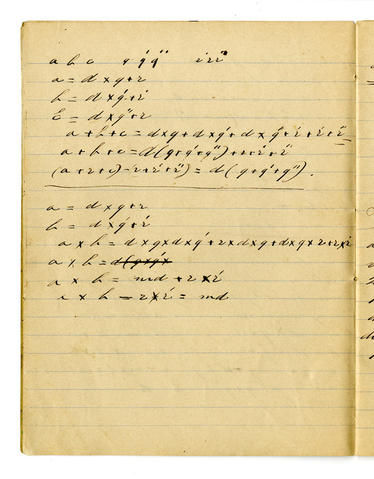 a b c q q' q'' r r' r''
a = d × q + r
b = d × q' + r'
c = d × q'' + r
a + b + c = d × q + d × q' + d × q'' + r + r' + r''
a + b + c = d (q + q' + q'') + r + r' + r''
(a + b + c) - r + r' + r'') = d (q + q' + q'').
a = d × q + r
b = d × q' + r'
a × b = d × q × d × q' + r × d × q + d × q × r + r × r'
a × b = d (q × q' ×
a × b = md + r × r'
a × b - r × r' = md